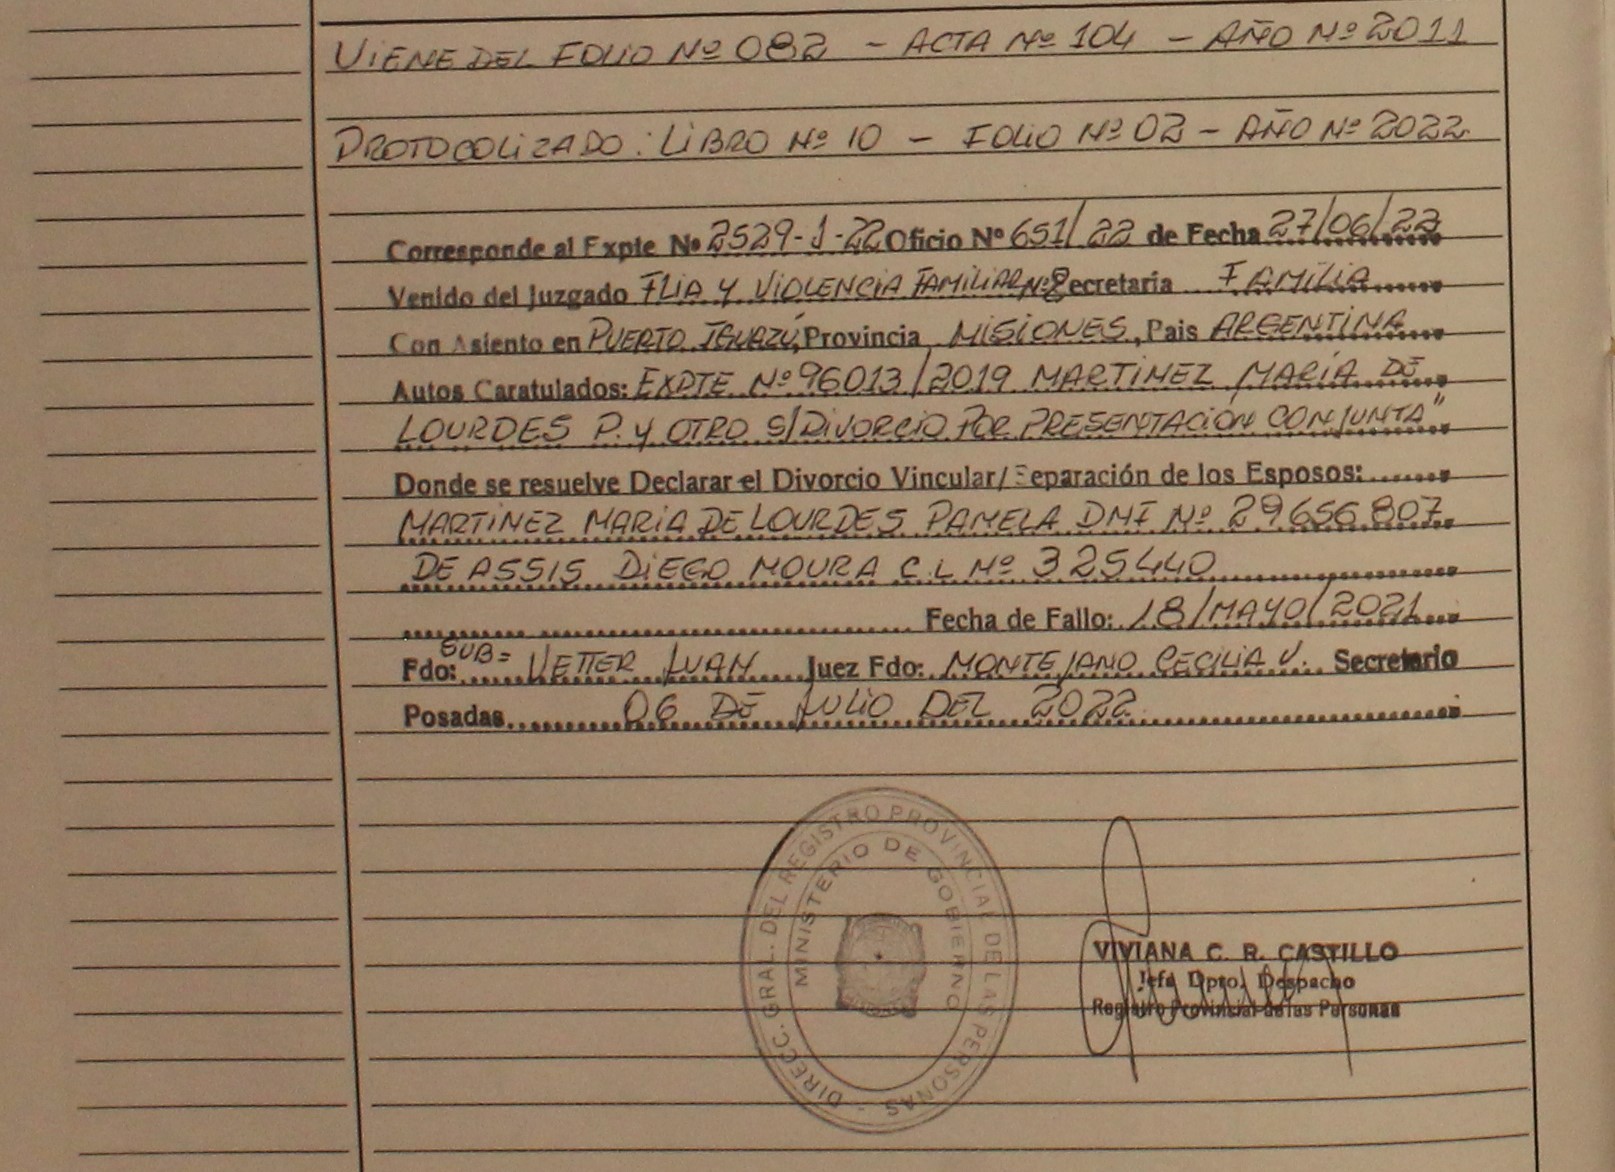 VIENE DEL FOLIO Nº 082 - ACTA Nº 104 - AÑO Nº 2011
PROTOCOLIZADO: LIBRO Nº 10 - FOLIO Nº 02 - AÑO Nº 2022.
Corresponde al Expte Nº 2529-J-22 Oficio Nº 651/22 de Fecha 27/06/22
Venido del Juzgado FLIA Y VIOLENCIA FAMILIAR Nº2 Secretaria FAMILIA
Con Asiento en PUERTO IGUAZÚ, Provincia MISIONES, Pais ARGENTINA
Autos Caratulados: EXPTE Nº 96013/2019 MARTINEZ MARÍA DE
LOURDES P. Y OTRO S/DIVORCIO POR PRESENTACIÓN CONJUNTA"
Donde se resuelve Declarar el Divorcio Vincular/Separación de los Esposos:
MARTINEZ MARIA DE LOURDES PAMELA DNI Nº 29.656.807
DE ASSIS DIEGO MOURA C.L Nº 325440
Fecha de Fallo: 18/MAYO/2021
Fdo: SUB= VETTER LUAN Juez Fdo: MONTEJANO CECILIA V. Secretario
Posadas 06 DE JULIO DEL 2022
DIRECC. GRAL. DEL REGISTRO PROVINCIAL DE LAS PERSONAS -
MINISTERIO DE GOBIERNO
VIVIANA C. R. CASTILLO
Jefa Dpto. Despacho
Registro Provincial de las Personas